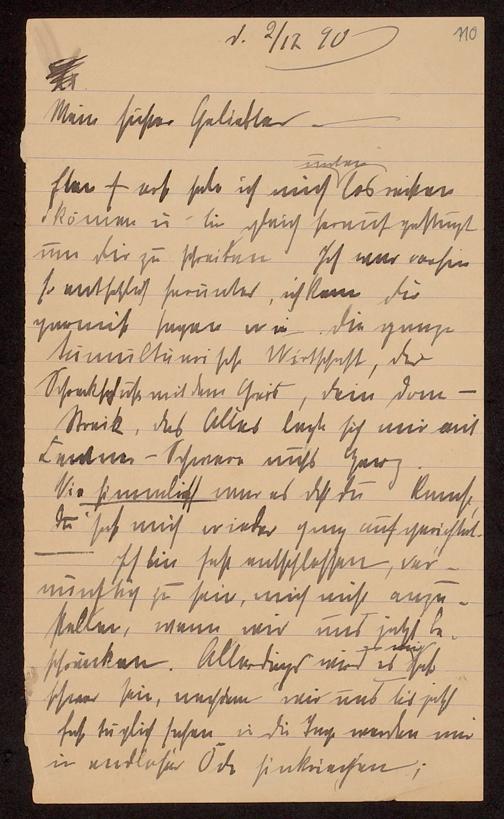 110
d. 2/12 90
Mein süßer Geliebter –
unten
Eben erst habe ich mich losreißen
können u. bin gleich herauf gestürzt
um dir zu schreiben Ich war vorhin
so entsetzlich herunter, ich kann dir
garnicht sagen wie. die ganze
tumultuarische Wirtschaft, der
Schreckschuß mit dem, dein
das Alles legte sich mir mit
Centner-Schwere aufs Herz.
Wie himmlisch war es daß du kamst,
du hast mich wieder ganz aufgerichtet. –
Ich bin fest entschlossen, ver-
nünftig zu sein, mich nicht anzu-
stellen, wenn wir uns jetzt be-
schränken. Allerdings wird es mir
schwer sein, nachdem wir uns bis jetzt
fast täglich sahen u. die Tage werden mir
in endloser Öde hinkriechen;